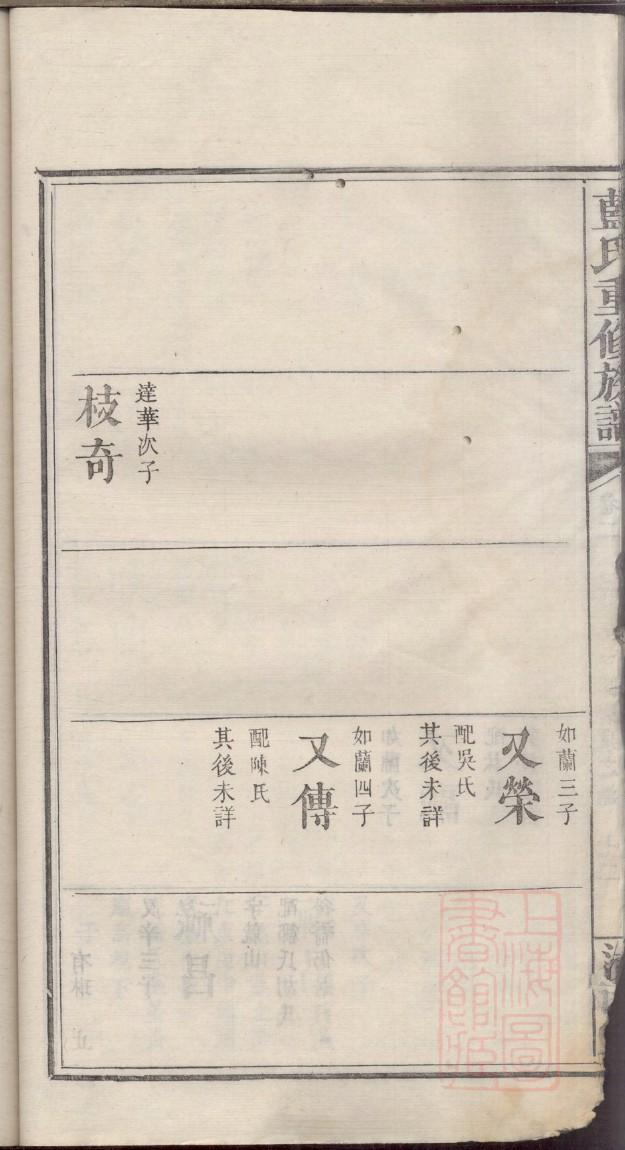 藍氏重修族譜
如蘭三子
又榮
配吳氏
其後未詳
如蘭四子
又傳
配陳氏
其後未詳
達華次子
枝奇
上海圖
書館藏